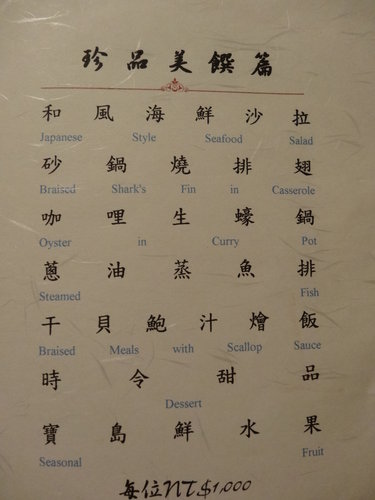 珍品美饌篇
和風海鮮沙拉
Japanese Style Seafood Salad
砂鍋燒排翅
Braised Shark's Fin in Casserole
咖哩生蠔鍋
Oyster in Curry Pot
蔥油蒸魚排
Steamed Fish
干貝鮑汁燴飯
Braised Meals with Scallop Sauce
時令甜品
Dessert
寶島鮮水果
Seasonal Fruit
每位NT$1,000